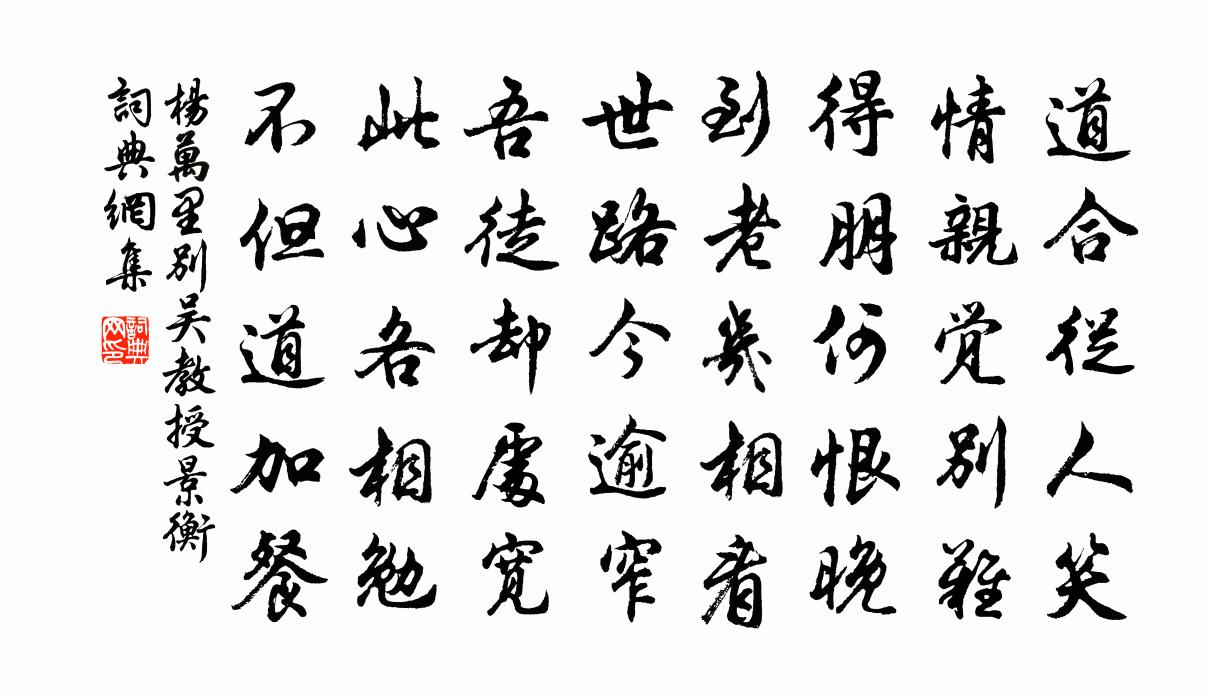 道合從人笑
情親覚別難
得朋何恨晚
到老幾相看
世路今逾窄
吾徒却處寬
此心各相勉
不但道加餐
楊萬里別吴教授景衡
詞典網集
詞典网印